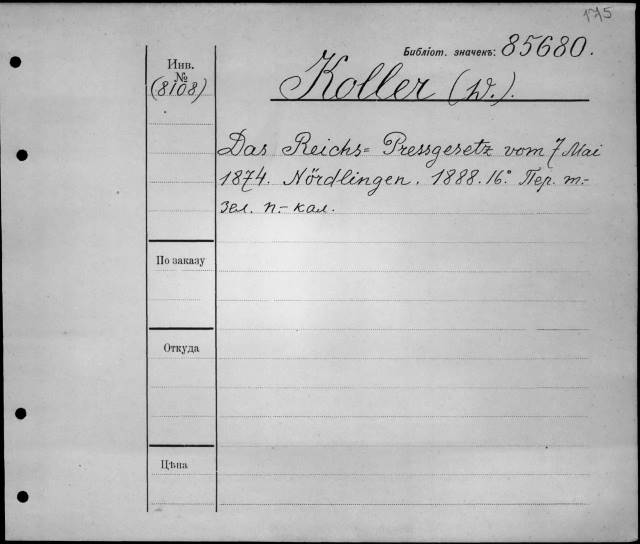 175
Библіот. значекъ: 85680.
Инв.
№
(8108)
Koller (W.).
Das Reichs= Pressgesetz vom 7 Mai
1874. Nördlingen. 1888. 16.° Пер. т.-
зел. п.- кал.
По заказу
Откуда
Цѣна